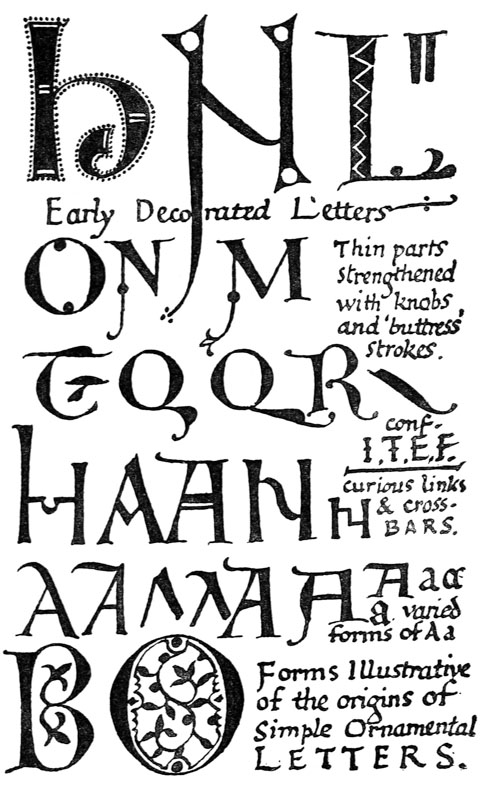 h N L "
Early Decorated Letters
O N M
Thin parts
strengthened
with knobs,
and 'buttress'
strokes.
T Q Q R
conf-
I.T.E.F.
H A A N
curious links
H & cross-
BARS.
A A A A A A A A a a
a varied
forms of A a
B O
Forms Illustrative
of the origins of
Simple Ornamental
LETTERS.